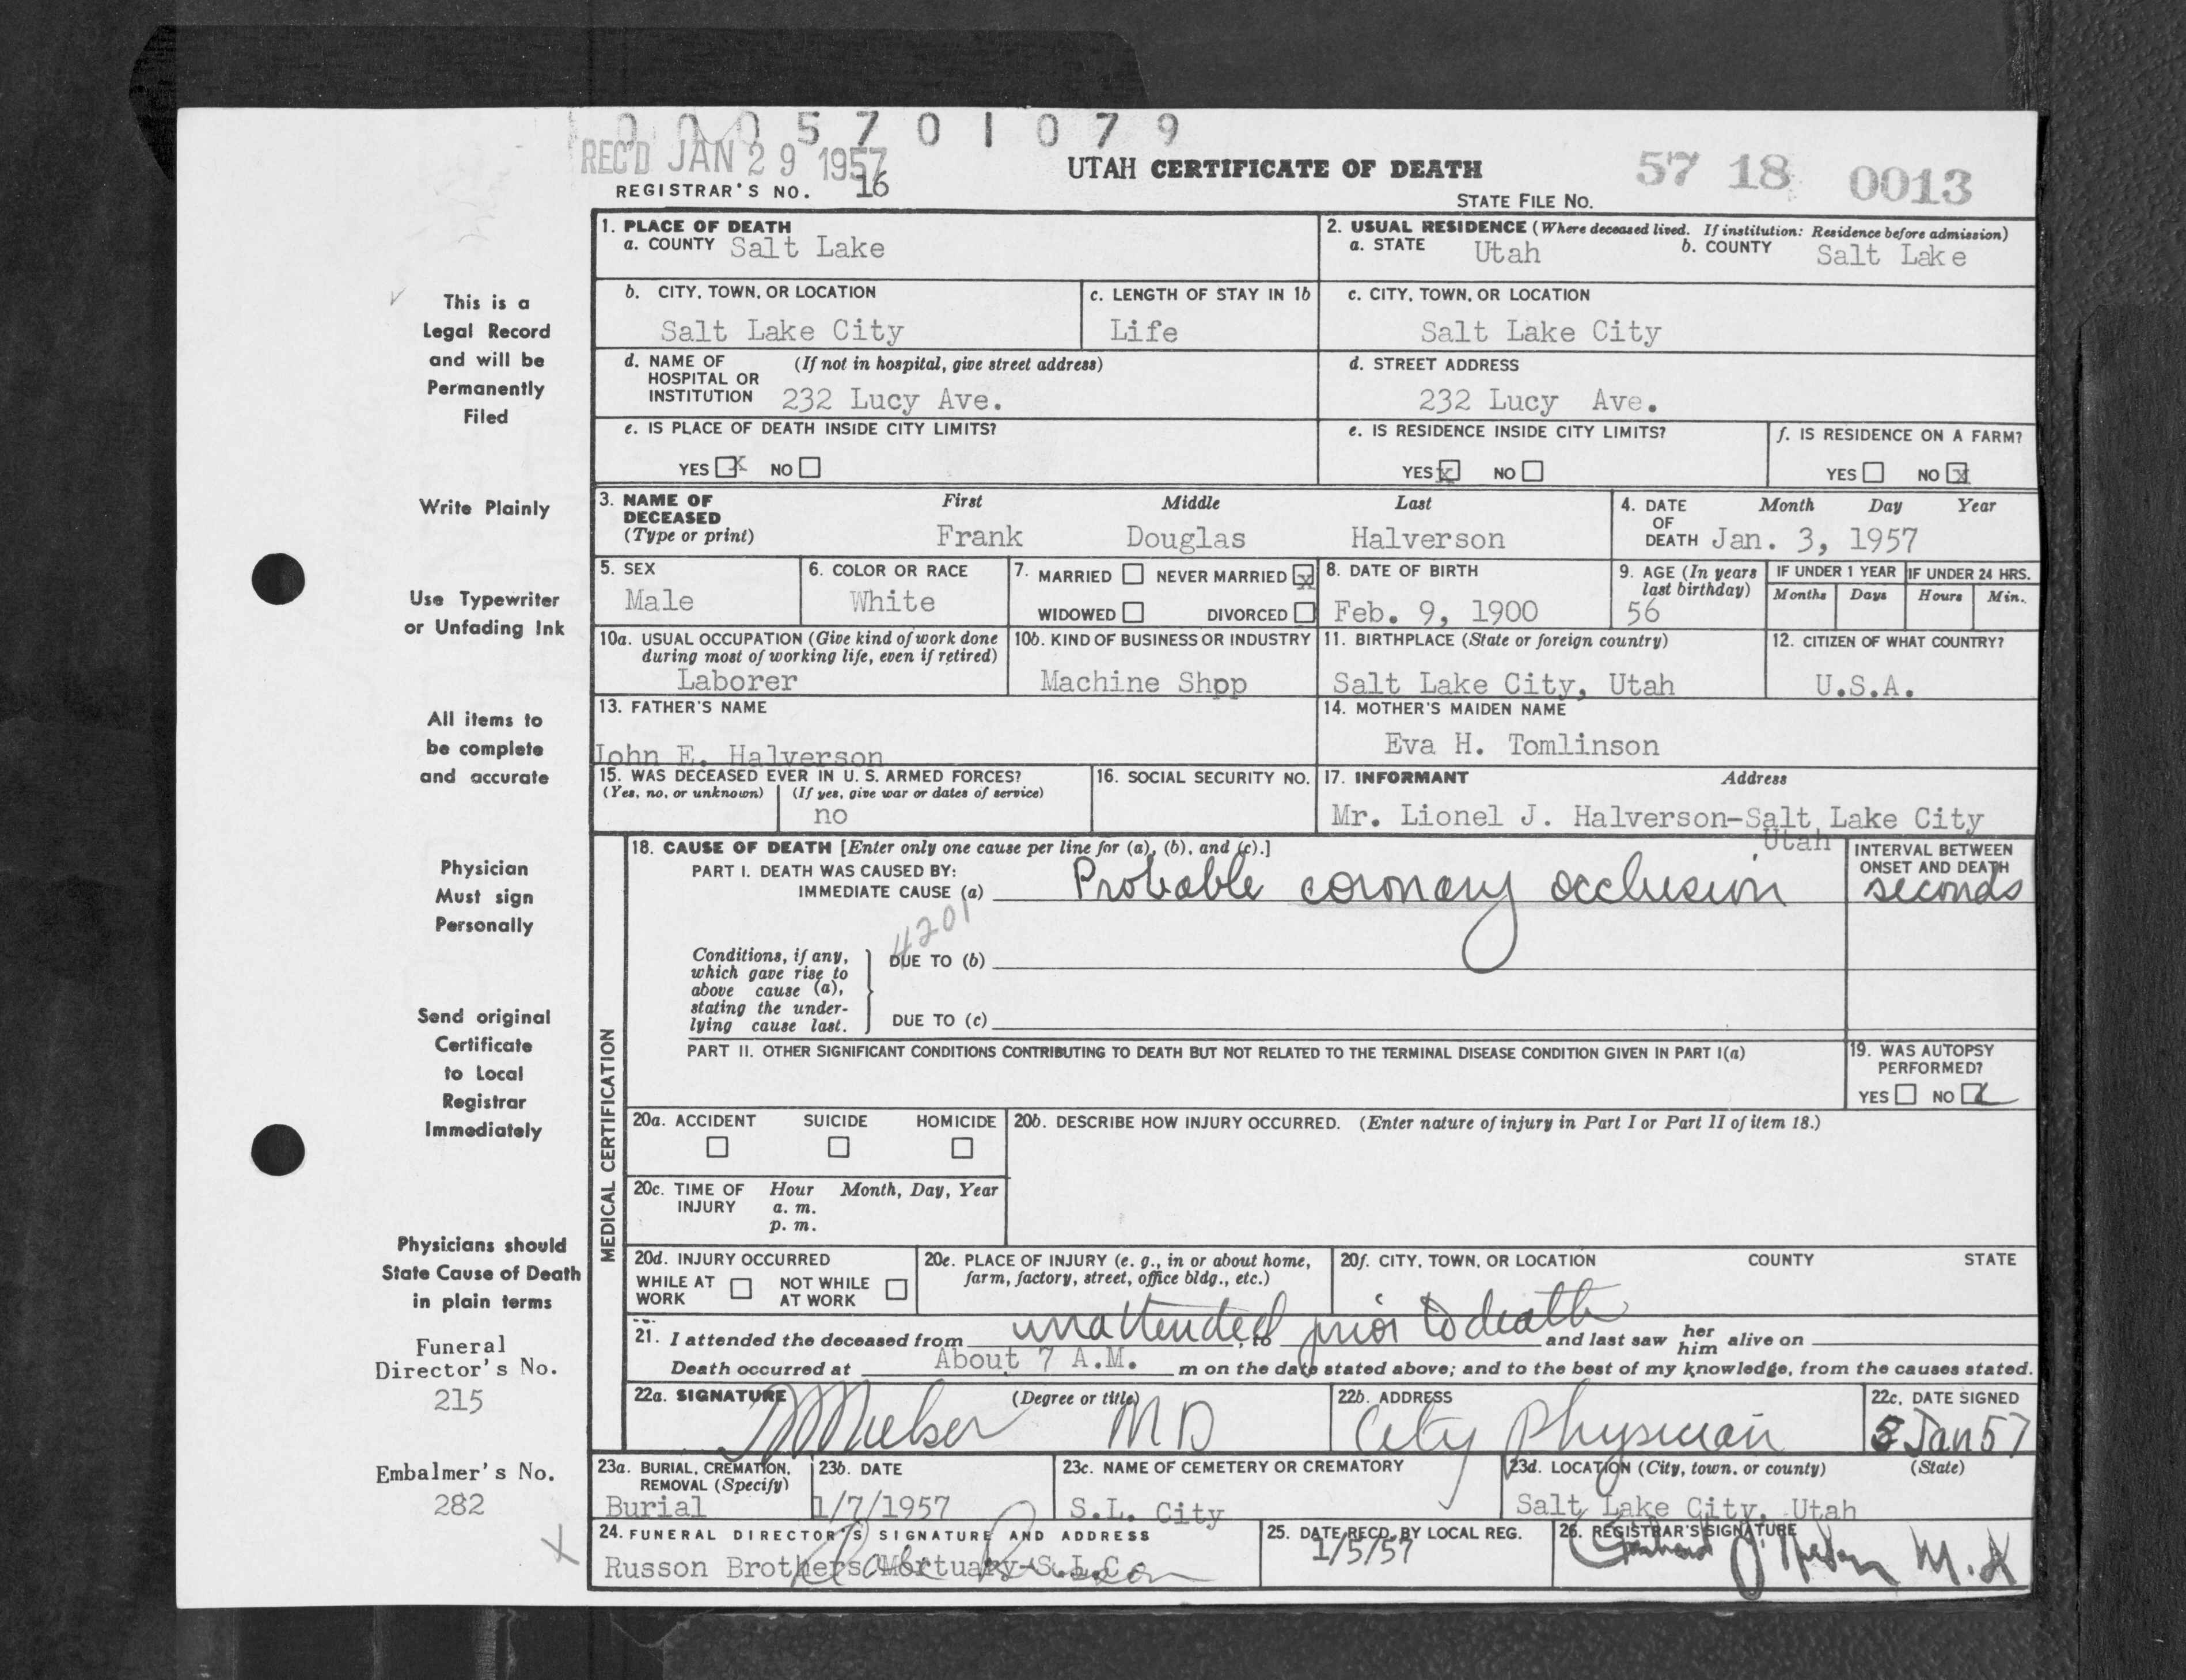 0005701079
REC'D JAN 29 1957
REGISTRAR'S NO. 16
UTAH CERTIFICATE OF DEATH
STATE FILE NO. 57 18 0013
This is a
Legal Record
and will be
Permanently
Filed
Write Plainly
Use Typewriter
or Unfading Ink
All items to
be complete
and accurate
Physician
Must sign
Personally
Send original
Certificate
to Local
Registrar
Immediately
Physicians should
State Cause of Death
in plain terms
Funeral
Director's No.
215
Embalmer's No.
282
1. PLACE OF DEATH
a. COUNTY Salt Lake
2. USUAL RESIDENCE (Where deceased lived. If institution: Residence before admission)
a. STATE Utah b. COUNTY Salt Lake
b. CITY, TOWN, OR LOCATION
Salt Lake City
c. LENGTH OF STAY IN 1b
Life
c. CITY, TOWN, OR LOCATION
Salt Lake City
d. NAME OF (If not in hospital, give street address)
HOSPITAL OR
INSTITUTION 232 Lucy Ave.
d. STREET ADDRESS
232 Lucy Ave.
e. IS PLACE OF DEATH INSIDE CITY LIMITS?
YES x NO
e. IS RESIDENCE INSIDE CITY LIMITS?
YES x NO
f. IS RESIDENCE ON A FARM?
YES NO x
3. NAME OF First Middle Last
DECEASED
(Type or print) Frank Douglas Halverson
4. DATE Month Day Year
OF
DEATH Jan. 3, 1957
5. SEX
Male
6. COLOR OR RACE
White
7. MARRIED NEVER MARRIED x
WIDOWED DIVORCED
8. DATE OF BIRTH
Feb. 9, 1900
9. AGE (In years
last birthday)
56
IF UNDER 1 YEAR
Months Days
IF UNDER 24 HRS.
Hours Min.
10a. USUAL OCCUPATION (Give kind of work done
during most of working life, even if retired)
Laborer
10b. KIND OF BUSINESS OR INDUSTRY
Machine Shpp
11. BIRTHPLACE (State or foreign country)
Salt Lake City, Utah
12. CITIZEN OF WHAT COUNTRY?
U.S.A.
13. FATHER'S NAME
John E. Halverson
14. MOTHER'S MAIDEN NAME
Eva H. Tomlinson
15. WAS DECEASED EVER IN U. S. ARMED FORCES?
(Yes, no, or unknown) (If yes, give war or dates of service)
no
16. SOCIAL SECURITY NO.
17. INFORMANT Address
Mr. Lionel J. Halverson-Salt Lake City
Utah
MEDICAL CERTIFICATION
18. CAUSE OF DEATH [Enter only one cause per line for (a), (b), and (c).]
PART I. DEATH WAS CAUSED BY:
IMMEDIATE CAUSE (a) Probable coronary occlusion
INTERVAL BETWEEN
ONSET AND DEATH
seconds
4201
Conditions, if any,
which gave rise to
above cause (a),
stating the under-
lying cause last.
DUE TO (b)
DUE TO (c)
PART II. OTHER SIGNIFICANT CONDITIONS CONTRIBUTING TO DEATH BUT NOT RELATED TO THE TERMINAL DISEASE CONDITION GIVEN IN PART I(a)
19. WAS AUTOPSY
PERFORMED?
YES NO
20a. ACCIDENT SUICIDE HOMICIDE
20b. DESCRIBE HOW INJURY OCCURRED. (Enter nature of injury in Part I or Part II of item 18.)
20c. TIME OF Hour Month, Day, Year
INJURY a. m.
p. m.
20d. INJURY OCCURRED
WHILE AT NOT WHILE
WORK AT WORK
20e. PLACE OF INJURY (e. g., in or about home,
farm, factory, street, office bldg., etc.)
20f. CITY, TOWN, OR LOCATION COUNTY STATE
21. I attended the deceased from unattended, to prior to death and last saw her him alive on
Death occurred at About 7 A.M. m on the date stated above; and to the best of my knowledge, from the causes stated.
22a. SIGNATURE (Degree or title)
MD
22b. ADDRESS
City Physician
22c. DATE SIGNED
5 Jan 57
23a. BURIAL, CREMATION,
REMOVAL (Specify)
Burial
23b. DATE
1/7/1957
23c. NAME OF CEMETERY OR CREMATORY
S.L. City
23d. LOCATION (City, town, or county) (State)
Salt Lake City, Utah
24. FUNERAL DIRECTOR'S SIGNATURE AND ADDRESS
Russon Brothers Mortuary-S.L.C.
25. DATE RECD. BY LOCAL REG.
1/5/57
26. REGISTRAR'S SIGNATURE